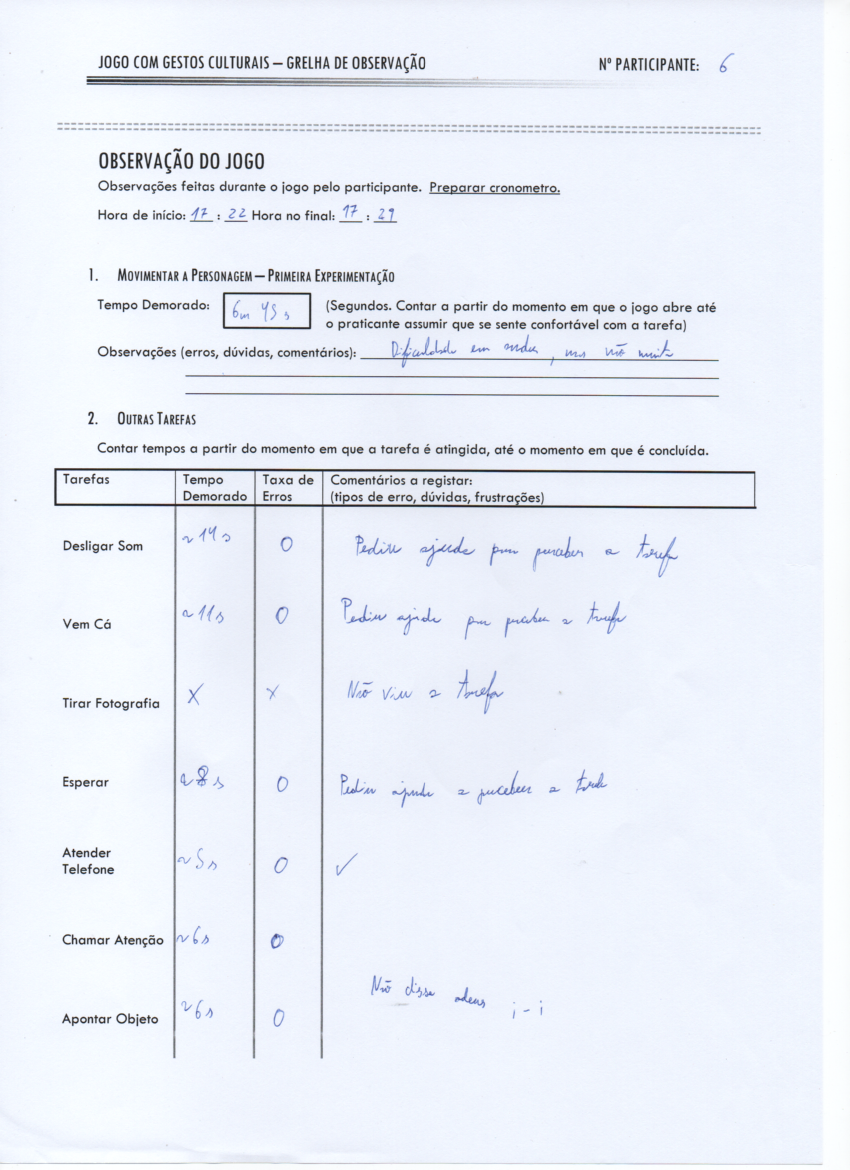 JOGO COM GESTOS CULTURAIS – GRELHA DE OBSERVAÇÃO Nº PARTICIPANTE: 6
OBSERVAÇÃO DO JOGO
Observações feitas durante o jogo pelo participante. Preparar cronometro.
Hora de início: 17 : 22 Hora no final: 17 : 29
1. MOVIMENTAR A PERSONAGEM – PRIMEIRA EXPERIMENTAÇÃO
Tempo Demorado: 6m 45s (Segundos. Contar a partir do momento em que o jogo abre até
o praticante assumir que se sente confortável com a tarefa)
Observações (erros, dúvidas, comentários): Dificuldade em andar, mas não muita
2. OUTRAS TAREFAS
Contar tempos a partir do momento em que a tarefa é atingida, até o momento em que é concluída.
Tarefas Tempo Taxa de Comentários a registar:
Demorado Erros (tipos de erro, dúvidas, frustrações)
Desligar Som ~14s 0 Pediu ajuda para perceber a tarefa
Vem Cá ~11s 0 Pediu ajuda para perceber a tarefa
Tirar Fotografia X X Não viu a tarefa
Esperar ~8s 0 Pediu ajuda a perceber a
Atender
Telefone ~5s 0 ✓
Chamar Atenção ~6s 0
Não disse adeus i-i
Apontar Objeto ~6s 0